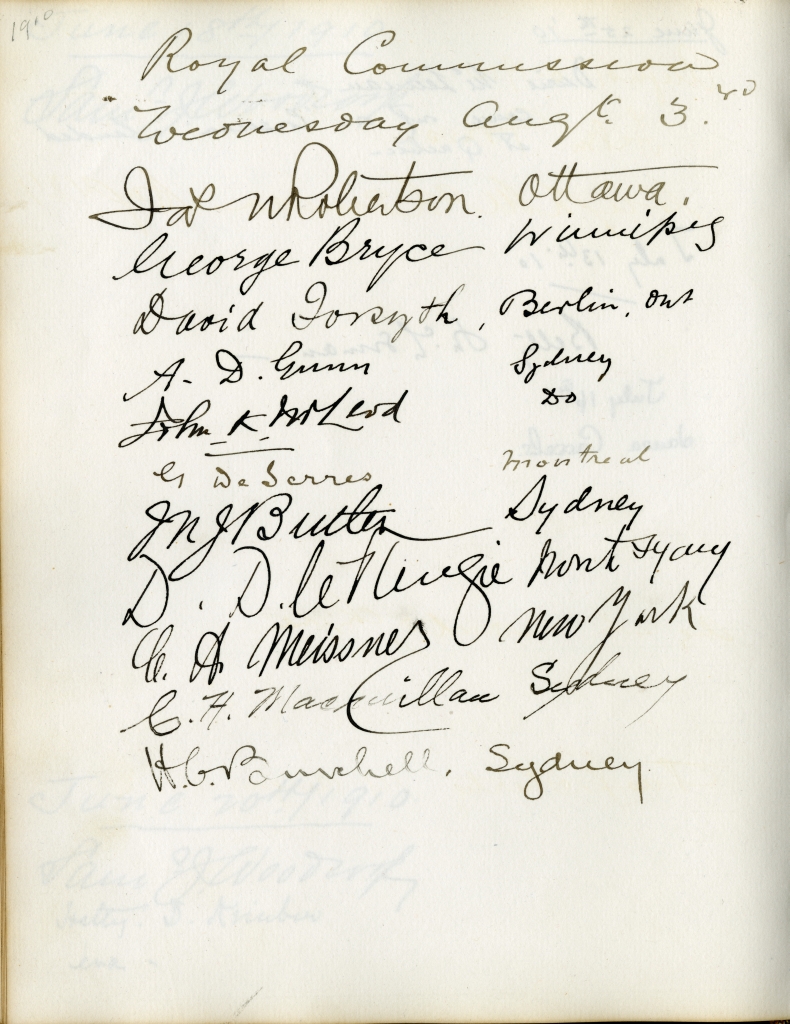 1910
Royal Commission
Wednesday Augt. 3.rd
Jas W Robertson. Ottawa.
George Bryce Winnipeg
David Forsyth, Berlin, Ont
A. D. Gunn Sydney
John K McLeod Do
G De Serres Montreal
Sydney
D. D. McKenzie North Sydney
C. A. Meissner New York
C. H. Macmillan Sydney
H. C. Burchell. Sydney